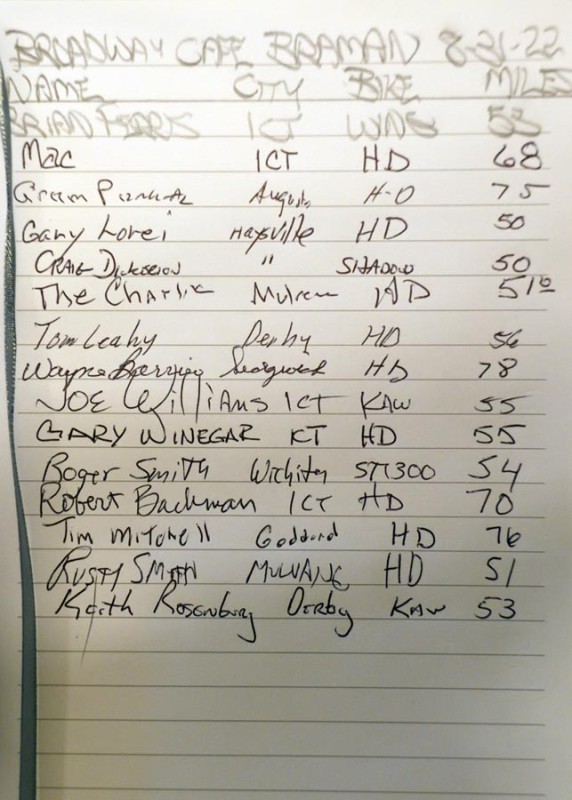 BROADWAY CAFE BRAMAN 8-31-22
NAME CITY BIKE MILES
BRIAN ICT WING 53
Mac ICT HD 68
Augusta H-D 75
Gary Lorei Haysville HD 50
CRAIG DICKERSON " SHADOW 50
The Charlie Mulvane HD
Tom Leahy Derby HD 56
Wayne Sedgwick HD 78
JOE Williams ICT KAW 55
GARY WINEGAR ICT HD 55
Roger Smith Wichita ST1300 54
Robert Backman ICT HD 70
Tim Mitchell Goddard HD 76
RUSTY SMITH MULVANE HD 51
Keith Rosenburg Derby KAW 53